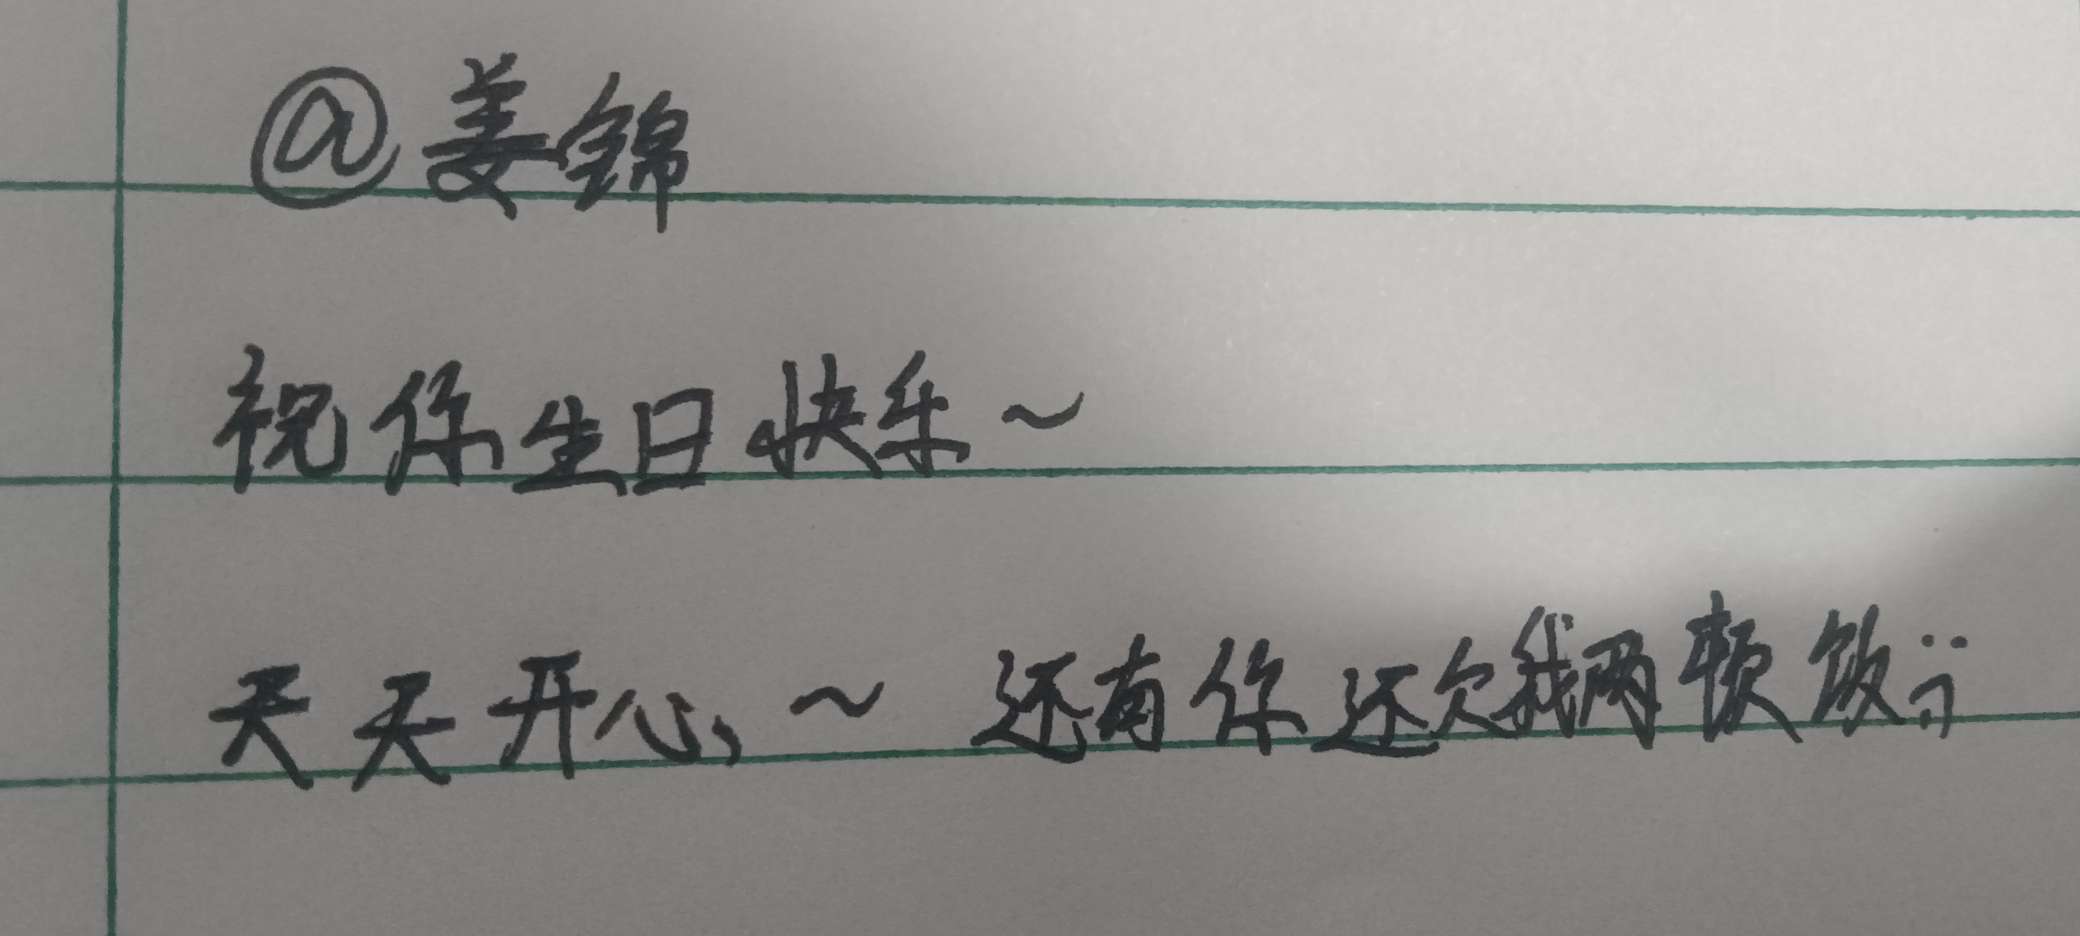 @姜锦
祝你生日快乐~
天天开心、~ 还有你还欠我两顿饭